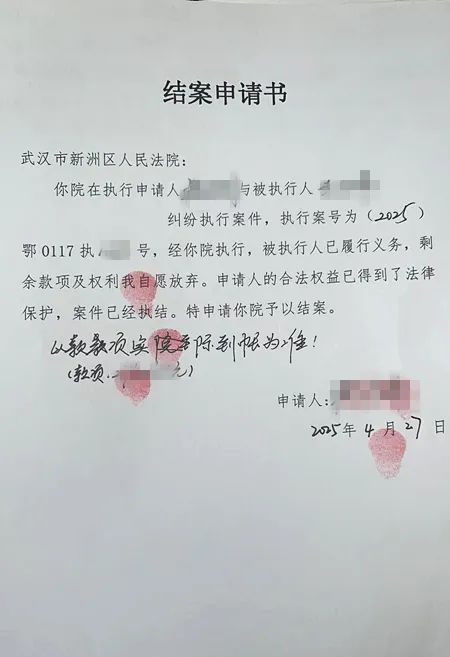 结案申请书
武汉市新洲区人民法院：
你院在执行申请人与被执行人
纠纷执行案件，执行案号为（2025）
鄂0117执号，经你院执行，被执行人已履行义务，剩
余款项及权利我自愿放弃。申请人的合法权益已得到了法律
保护，案件已经执结。特申请你院予以结案。
以款项实际到帐为准！
（款项：元）
申请人：
2025年4月27日